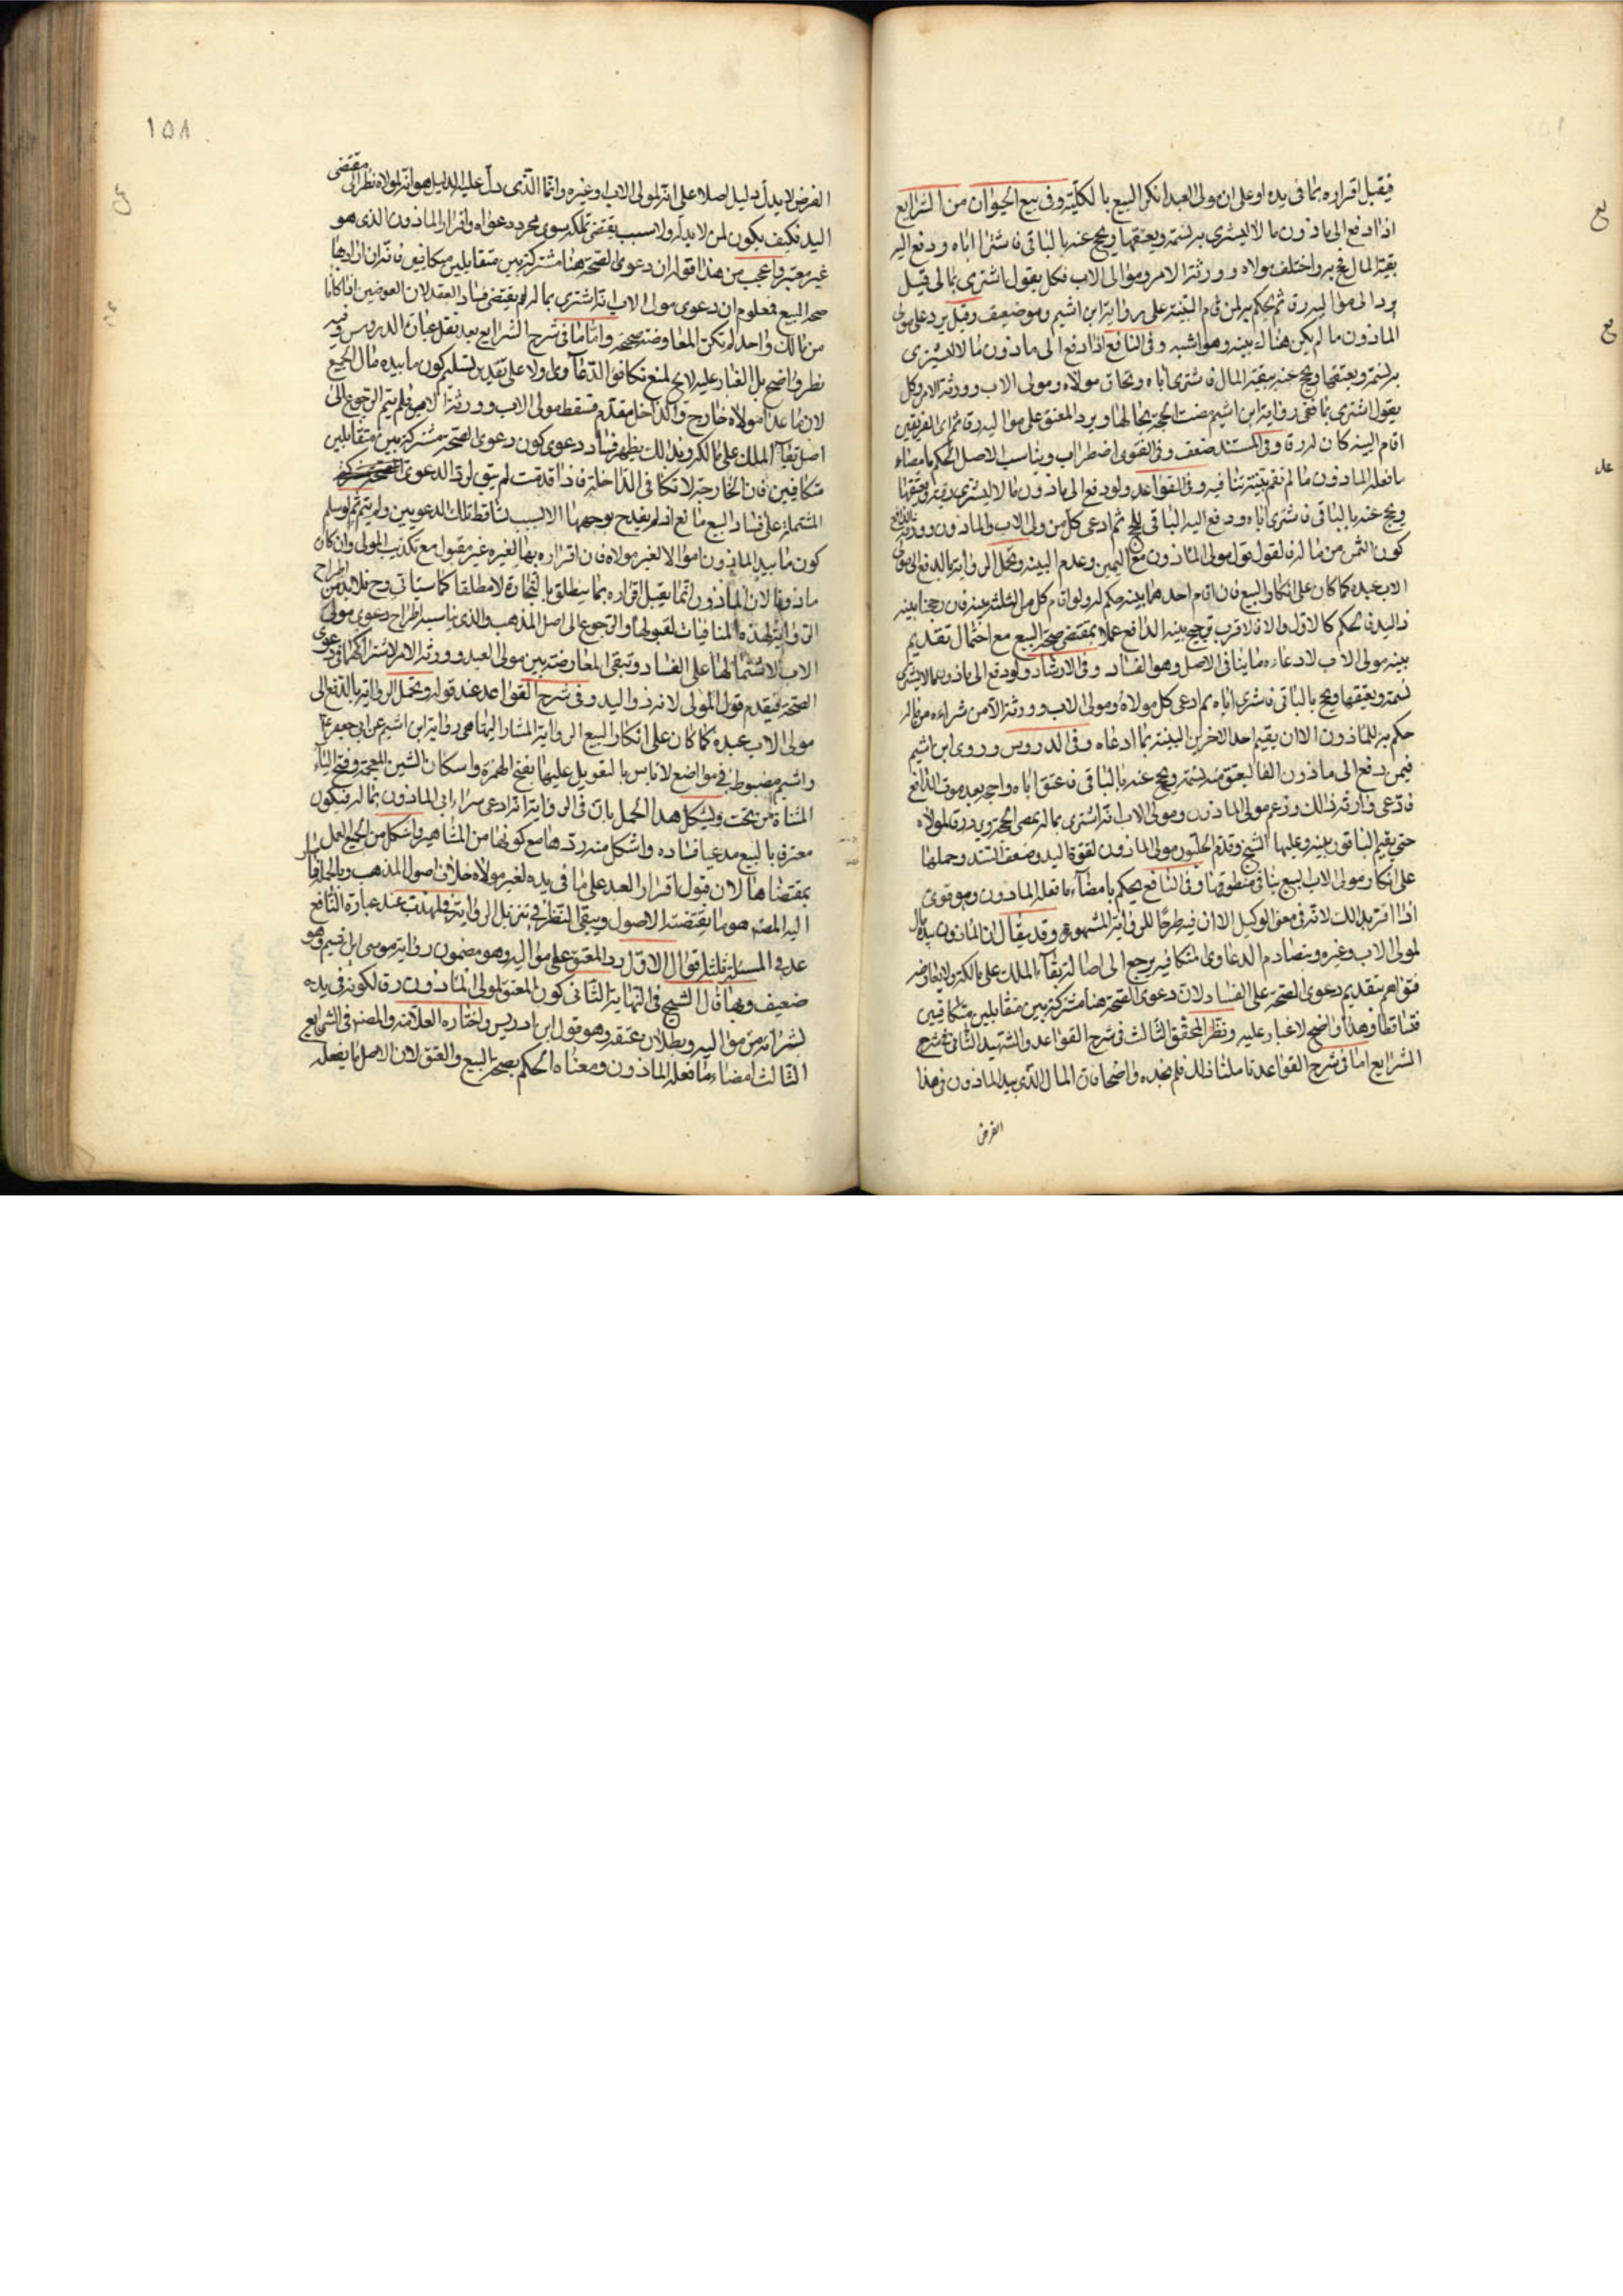 فيقبل اقراره بما فى يده او على ان مولى العبد انكر البيع بالكلّيّة وفى بيع الحيوان من الشرايع
اذا دفع الى ماذون مالا ليشترى به نسمة ويعتقها ويحج عنه بالباقى فاشترا اباه ودفع اليه
بقيّة المال فحج به واختلف مولاه وورثة الامر ومولى الاب فكل يقول اشترى بمالى قيل
يرد الى مولاه رقا ثم يحكم به لمن اقام البيّنة على رواية ابن اشيم وهو ضعيف وقيل يرد على مولى
الماذون ما لم يكن هناك بينه وهو اشبه وفى النافع اذا دفع الى ماذون مالا ليشترى
به نسمة ويعتقها ويحج عنه ببقيّة المال فاشترى اباه وتحاق مولاه ومولى الاب وورثة الامر وكل
يقول اشترى بمالى ففى رواية ابن اشيم مضت الحجة بحالها ويرد المعتق على مواليه رقا ثم اى الفريقين
اقام البينه كان له رقا وفى المستند ضعف وفى الفتوى اضطراب ويناسب الاصل الحكم بامضاء
ما فعله الماذون ما لم تقم بيّنة تنافيه وفى القواعد ولو دفع الى ماذون مالا ليشترى رقبة ويعتقها
ويحج عنه بالباقى فاشترى اباه ودفع اليه الباقى للحج ثم ادعى كل من مولى الاب والماذون وورثة الدافع
كون الثمن من ماله فالقول قول مولى الماذون مع اليمين وعدم البينه وتحمل الرواية بالدفع الى مولى
الاب عبده كما كان على انكار البيع فان اقام احدهما بينه حكم له ولو اقام كل من الثلثه بينه فان رجحنا بينه
ذا اليد فالحكم كالاول والا فالاقرب ترجيح بينه الدافع عملا بمقتضى صحة البيع مع احتمال تقديم
بينه مولى الاب لادعائه ما ينافى الاصل وهو الفساد وفى الارشاد ولو دفع الى ماذون مالا ليشترى
نسمة ويعتقها ويحج بالباقى فاشترى اباه ثم ادعى كل مولاه ومولى الاب وورثة الآمر شراءه من ماله
حكم به للماذون الا ان يقيم احد الآخرين البينة بما ادعاه وفى الدروس وروى ابن اشيم
فيمن دفع الى ماذون الفا ليعتق منه نسمة ويحج عنه بالباقى فاعتق اباه واحجه بعد موت الدافع
فادعى وارثه ذلك وزعم مولى الماذون ومولى الاب انه اشترى بماله تمضى الحجة ويرد رقا لمولاه
حتى يقيم الباقون بينه وعليها الشيخ وقدّم الحلّيون مولى الماذون لقوة اليد وضعف السند وحملها
على انكار مولى الاب البيع ينافى منطوقها وفى النافع يحكم بامضاء ما فعله الماذون وهو قوى
اذا اقر بذلك لانه فى معنى الوكيل الا ان فيه طرحًا للرواية المشهورة وقد يقال ان الماذون بيده مال
لمولى الاب وغيره وبتصادم الدعاوى المتكافيه يرجع الى اصالة بقآء الملك على مالكه ولا يعارضه
فتواهم بتقديم دعوى الصحة على الفساد لان دعوى الصحة هنا مشتركة بين متقابلين متكافيين
فتساقطا وهذا واضح لا غبار عليه ونظر المحقّق الثالث فى شرح القواعد والشهيد الثانى فى شرح
الشرايع اما فى شرح القواعد تاملنا ذلك فلم نجده واضحا فان المال الّذى بيد الماذون فى هذا
الفرض
١٥٨
الفرض لا يدل دليل اصلا على انه لمولى الاب او غيره وانّما الّذى دلّ عليه الدليل هو انّه لمولاه نظرا الى مقتضى
اليد فكيف يكون لمن لا يد له ولا سبب يقتضى تملكه سوى مجرد دعواه واقرار الماذون الذى هو
غير معتبر واعجب من هذا قوله ان دعوى الصحة هنا مشتركة بين متقابلين متكافيين فانّه ان اراد بها
صحة البيع فمعلوم ان دعوى مولى الاب انه اشترى بماله يقتضى فساد العقد لان العوضين اذا كانا
من مالك واحد لم تكن المعاوضة صحيحة وامّا ما فى شرح الشرايع بعد نقل عبارة الدروس وفيه
نظر واضح بل الغبار عليه لايح لمنع تكافؤ الدعاوى ولا على تقدير تسليم كون ما بيده مال الجميع
لان ما عدا مولاه خارج والداخل مقدّم فسقط مولى الاب وورثة الامر فلم يتم الرجوع الى
اصل بقآء الملك على مالكه وبذلك يظهر فساد دعوى كون دعوى الصحة مشتركة بين متقابلين
متكافيين فان الخارجة لا تكافى الداخلة فاذا قدمت لم يبق لرد الدعوى
المشتملة على فساد البيع مانع اذ لم يقدح بوجهها الا لسبب تساقط تلك الدعويين ولم يتم ثم لو سلم
كون ما بيد الماذون اموالا لغير مولاه فان اقراره بها لغيره غير مقبول مع تكذيب المولى وان كان
ماذونا لان الماذون انما يقبل اقراره بما يتعلق بالتجارة لا مطلقا كما سياتى وح فلا بد من اطراح
الرواية لهذه المنافيات لقبولها والرجوع الى اصل المذهب والذى يناسبه اطراح دعوى مولى
الاب لاشتمالها على الفساد وتبقى المعارضة بين مولى العبد وورثة الامر لاشتراكهما فى دعوى
الصحة فيقدم قول المولى لانه ذو اليد وفى شرح القواعد عند قوله وتحمل الرواية بالدفع الى
مولى الاب عبده كما كان على انكار البيع الرواية المشار اليها هى رواية ابن اشيم عن ابى جعفر ع
واشيم مضبوط فى مواضع لا باس بالتعويل عليها بفتح الهمزة واسكان الشين المعجمة وفتح الياء
المثناة من تحت ويشكل هذا الحمل بان فى الرواية انه ادعى شراء ابى الماذون بماله فيكون
معترفا بالبيع مدعيا فساده واشكل منه ردّها مع كونها من المشاهير واشكل من الجميع العمل
بمقتضاها لان قبول اقرار العبد على ما فى يده لغير مولاه خلاف اصول المذهب وبالجملة فما اشار
اليه المصنف هو ما يقتضيه الاصول ويبقى النظر فى تنزيل الرواية وفى المهذب عند عبارة النافع
عد فى المسئلة ثلثة اقوال الاوّل رد المعتق على مواليه وهو مضمون رواية موسى ابن اشيم وهو
ضعيف وبها قال الشيخ فى النهاية الثانى كون المعتق لمولى الماذون رقا لكونه فى يده
لشرائه من مواليه وبطلان عتقه وهو قول ابن ادريس واختاره العلامة والمصنف فى الشرايع
الثالث امضاء ما فعله الماذون ومعناه الحكم بصحة البيع والعتق لان الاصل ما يفعله